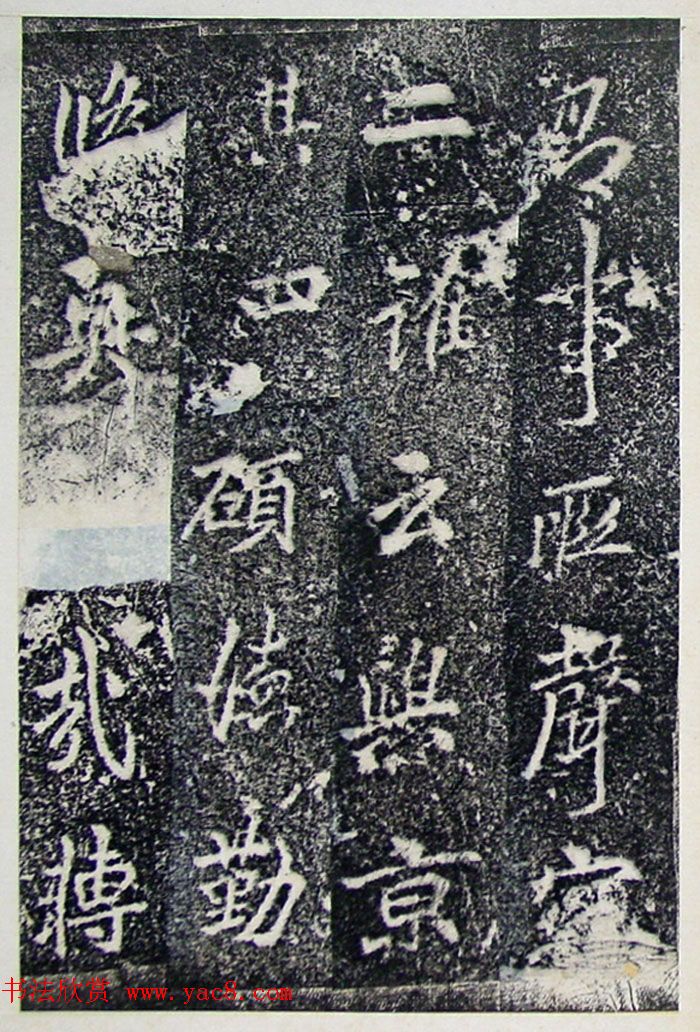 事匪聲
二誰云與京
其四碩德勤
臨哉
书法欣赏 www.yac8.com